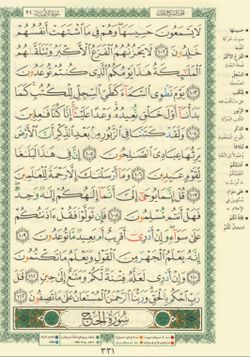 لَا يَسْمَعُونَ حَسِيسَهَا وَهُمْ فِي مَا اشْتَهَتْ أَنفُسُهُمْ
خَالِدُونَ ١٠٢ لَا يَحْزُنُهُمُ الْفَزَعُ الْأَكْبَرُ وَتَتَلَقَّاهُمُ
الْمَلَائِكَةُ هَٰذَا يَوْمُكُمُ الَّذِي كُنتُمْ تُوعَدُونَ
١٠٣ يَوْمَ نَطْوِي السَّمَاءَ كَطَيِّ السِّجِلِّ لِلْكُتُبِ كَمَا
بَدَأْنَا أَوَّلَ خَلْقٍ نُّعِيدُهُ وَعْدًا عَلَيْنَا إِنَّا كُنَّا فَاعِلِينَ
١٠٤ وَلَقَدْ كَتَبْنَا فِي الزَّبُورِ مِن بَعْدِ الذِّكْرِ أَنَّ الْأَرْضَ
يَرِثُهَا عِبَادِيَ الصَّالِحُونَ ١٠٥ إِنَّ فِي هَٰذَا لَبَلَاغًا
لِّقَوْمٍ عَابِدِينَ ١٠٦ وَمَا أَرْسَلْنَاكَ إِلَّا رَحْمَةً لِّلْعَالَمِينَ
١٠٧ قُلْ إِنَّمَا يُوحَىٰ إِلَيَّ أَنَّمَا إِلَٰهُكُمْ إِلَٰهٌ وَاحِدٌ
فَهَلْ أَنتُم مُّسْلِمُونَ ١٠٨ فَإِن تَوَلَّوْا فَقُلْ آذَنتُكُمْ
عَلَىٰ سَوَاءٍ وَإِنْ أَدْرِي أَقَرِيبٌ أَم بَعِيدٌ مَّا تُوعَدُونَ ١٠٩
إِنَّهُ يَعْلَمُ الْجَهْرَ مِنَ الْقَوْلِ وَيَعْلَمُ مَا تَكْتُمُونَ
١١٠ وَإِنْ أَدْرِي لَعَلَّهُ فِتْنَةٌ لَّكُمْ وَمَتَاعٌ إِلَىٰ حِينٍ ١١١ قَالَ
رَبِّ احْكُم بِالْحَقِّ وَرَبُّنَا الرَّحْمَٰنُ الْمُسْتَعَانُ عَلَىٰ مَا تَصِفُونَ ١١٢
سُورَةُ الْحَجِّ
٣٣١